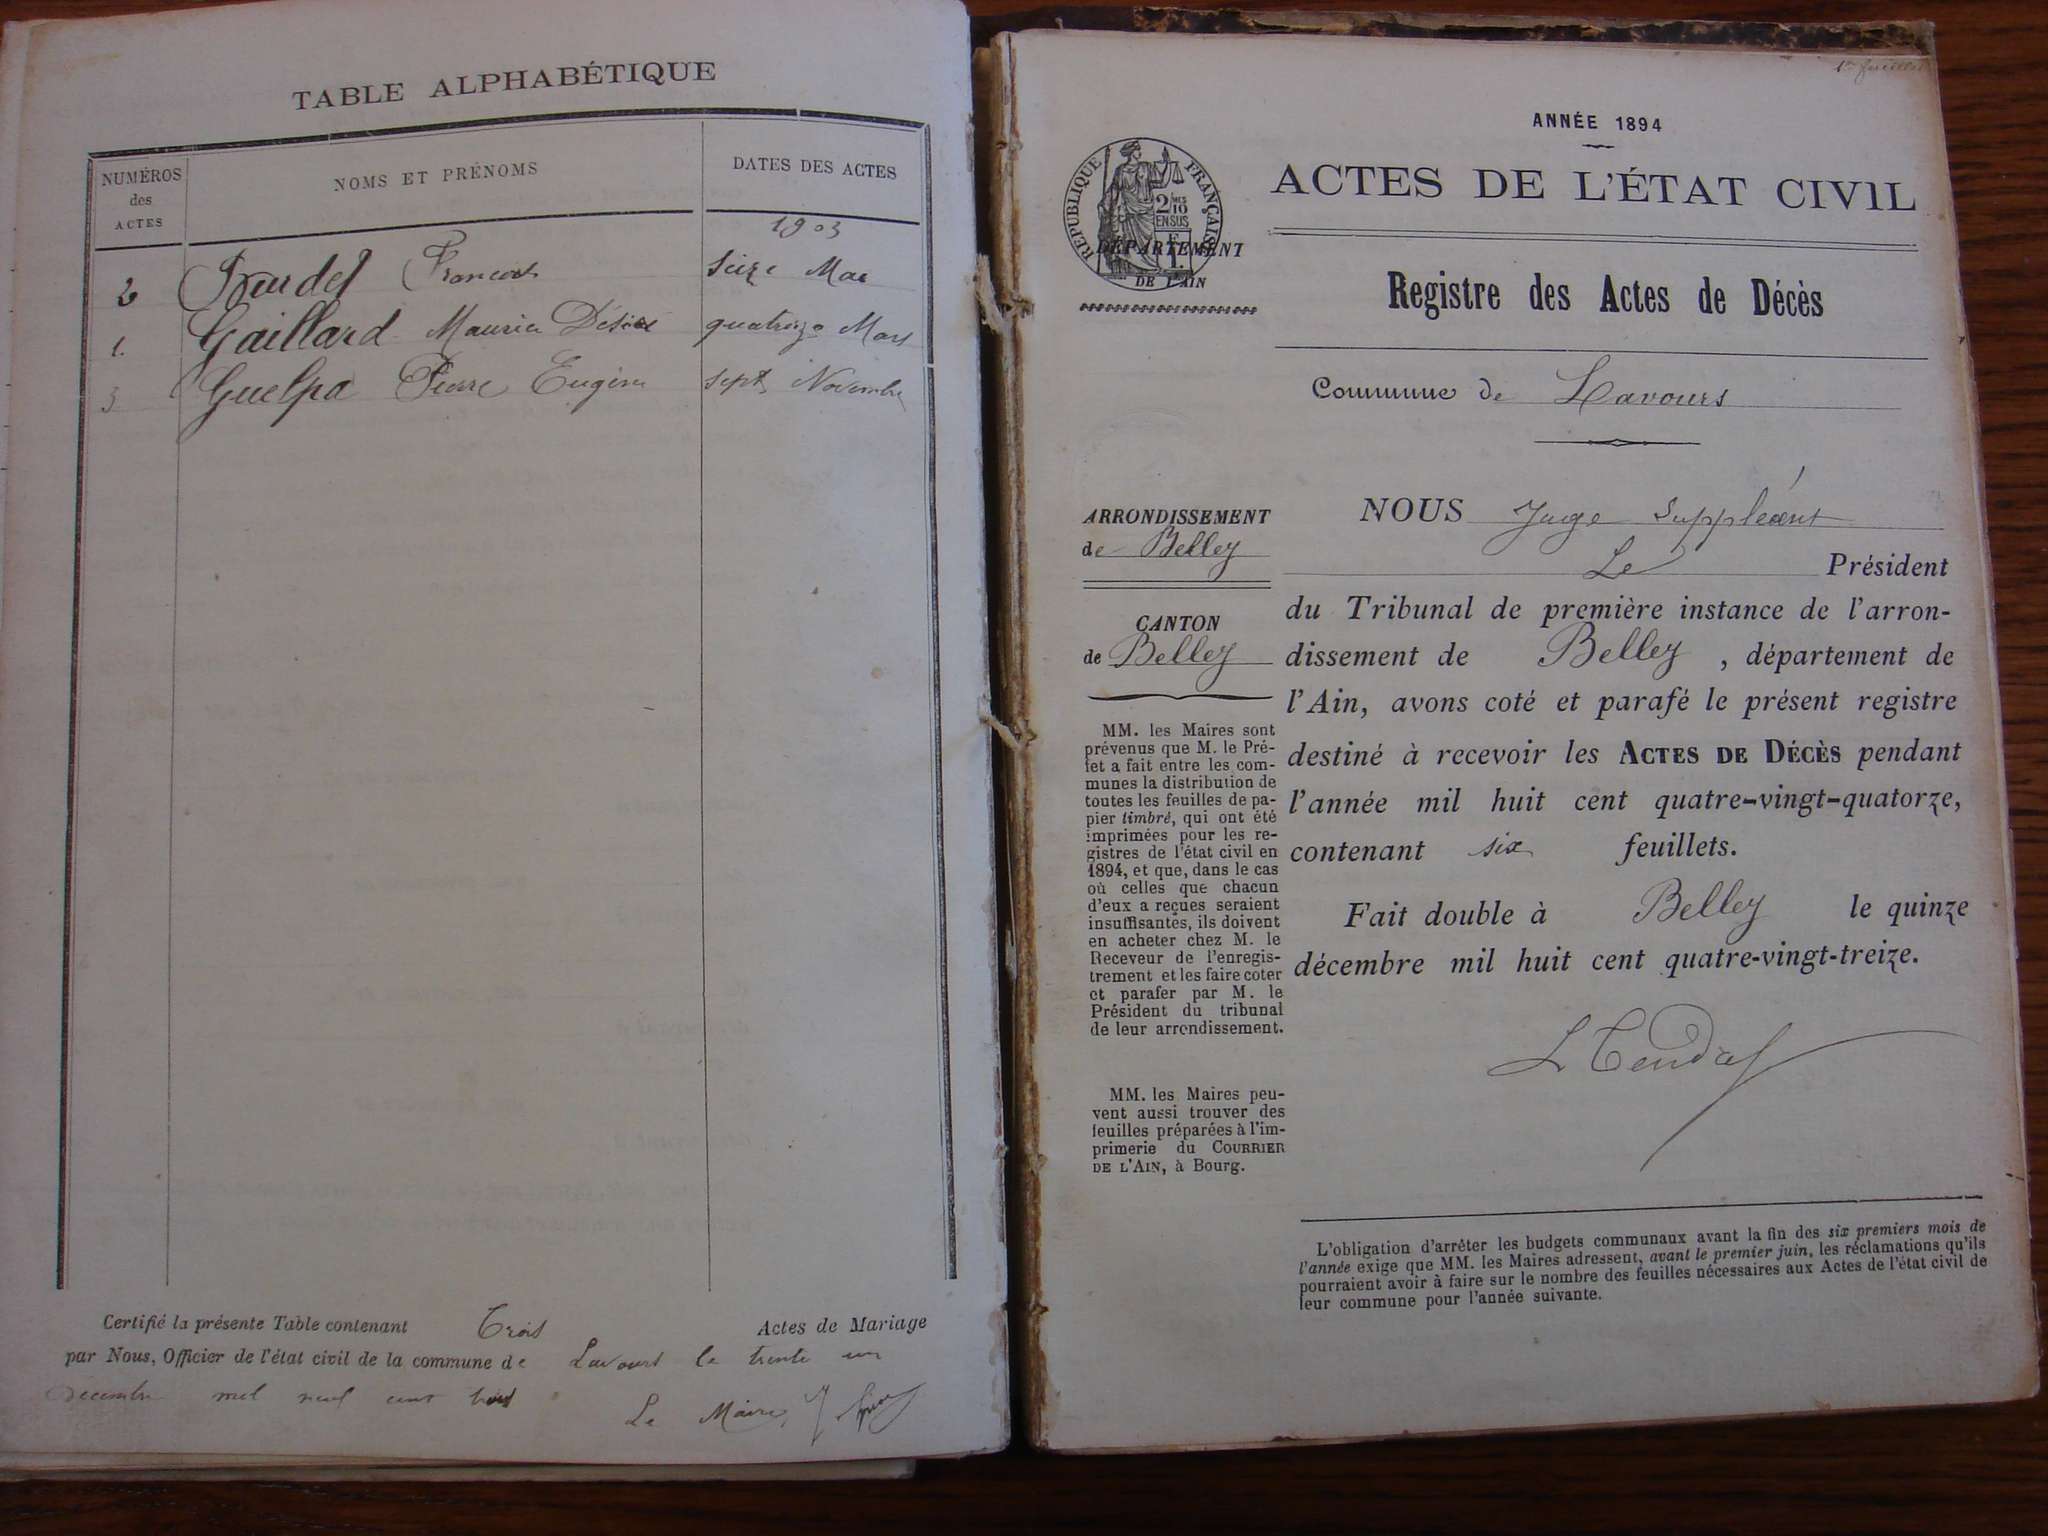 TABLE ALPHABÉTIQUE
NUMÉROS
des
ACTES
NOMS ET PRÉNOMS
DATES DES ACTES
1903
2 François Seize Mai
1. Gaillard Maurice Désiré quatorze Mars
3 Guelpa Pierre Eugène sept Novembre
Certifié la présente Table contenant Trois Actes de Mariage
par Nous, Officier de l'état civil de la commune de Lavours le trente un
décembre mil neuf cent trois
Le Maire,
1er feuillet
ANNÉE 1894
RÉPUBLIQUE FRANÇAISE
2 MES
10
EN SUS
DÉPARTEMENT
DE L'AIN
ACTES DE L'ÉTAT CIVIL
Registre des Actes de Décès
Commune de Lavours
ARRONDISSEMENT
de Belley
CANTON
de Belley
MM. les Maires sont
prévenus que M. le Pré-
fet a fait entre les com-
munes la distribution de
toutes les feuilles de pa-
pier timbré, qui ont été
imprimées pour les re-
gistres de l'état civil en
1894, et que, dans le cas
où celles que chacun
d'eux a reçues seraient
insuffisantes, ils doivent
en acheter chez M. le
Receveur de l'enregis-
trement et les faire coter
et parafer par M. le
Président du tribunal
de leur arrondissement.
MM. les Maires peu-
vent aussi trouver des
feuilles préparées à l'im-
primerie du COURRIER
DE L'AIN, à Bourg.
NOUS Juge Suppléant
Le Président
du Tribunal de première instance de l'arron-
dissement de Belley, département de
l'Ain, avons coté et parafé le présent registre
destiné à recevoir les ACTES DE DÉCÈS pendant
l'année mil huit cent quatre-vingt-quatorze,
contenant six feuillets.
Fait double à Belley le quinze
décembre mil huit cent quatre-vingt-treize.
L'obligation d'arrêter les budgets communaux avant la fin des six premiers mois de
l'année exige que MM. les Maires adressent, avant le premier juin, les réclamations qu'ils
pourraient avoir à faire sur le nombre des feuilles nécessaires aux Actes de l'état civil de
leur commune pour l'année suivante.